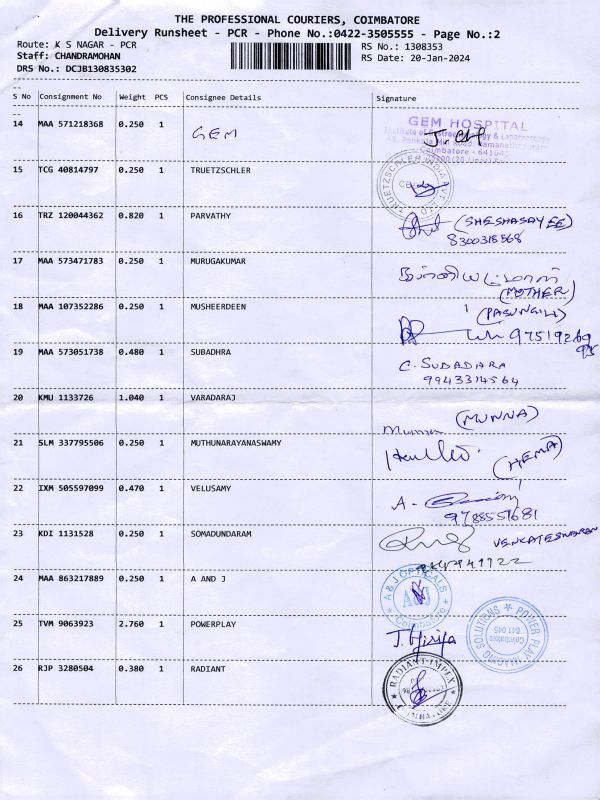 THE PROFESSIONAL COURIERS, COIMBATORE
Delivery Runsheet - PCR - Phone No.:0422-3505555 - Page No.:2
Route: K S NAGAR - PCR
RS No.: 1308353
Staff: CHANDRAMOHAN
RS Date: 20-Jan-2024
DRS No.: DCJB130835302
S No Consignment No Weight PCS Consignee Details Signature
14 MAA 571218368 0.250 1 GEM
GEM HOSPITAL
Coimbatore - 641045
15 TCG 40814797 0.250 1 TRUETZSCHLER
TRUETZSCHLER INDIA PVT LTD
16 TRZ 120044362 0.820 1 PARVATHY (SHESHASAYEE)
8300318568
17 MAA 573471783 0.250 1 MURUGAKUMAR
(MOTHER)
18 MAA 107352286 0.250 1 MUSHEERDEEN
19 MAA 573051738 0.480 1 SUBADHRA C. SUBADHARA
9943314564
20 KMU 1133726 1.040 1 VARADARAJ
(MUNNA)
21 SLM 337795506 0.250 1 MUTHUNARAYANASWAMY
(HEMA)
22 IXM 505597099 0.470 1 VELUSAMY A.
9788551681
23 KDI 1131528 0.250 1 SOMADUNDARAM VENKATESWARAN
24 MAA 863217889 0.250 1 A AND J
A & J OPTICALS
A&J
Coimbatore
25 TVM 9063923 2.760 1 POWERPLAY
POWER PLAY IMAGING SOLUTIONS
Coimbatore
641 045
26 RJP 3280504 0.380 1 RADIANT
RADIANT IMPEX
COIMBATORE